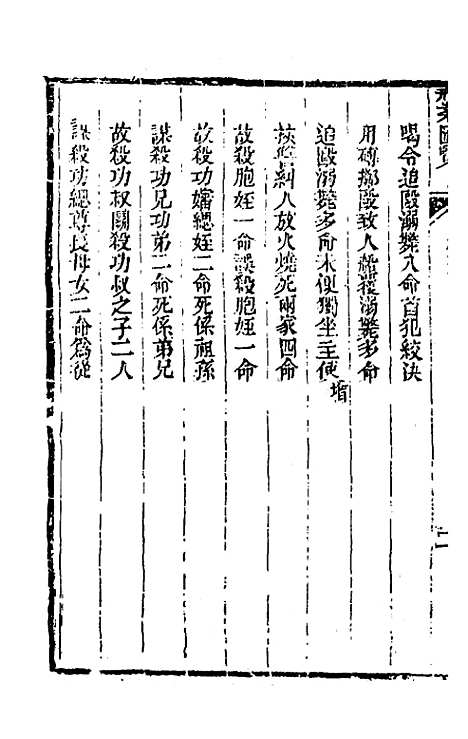 喝令追毆溺斃八命首犯絞決
用磚擲毆致人船覆溺斃多命
追毆溺斃多命未便獨坐主使
增
挾嫌糾人放火燒死兩家四命
故殺胞姪一命謀殺胞姪一命
故殺功嬸緦姪二命死係祖孫
謀殺功兄功弟二命死係弟兄
故殺功叔鬬殺功叔之子二人
謀殺功緦尊長母女二命為從